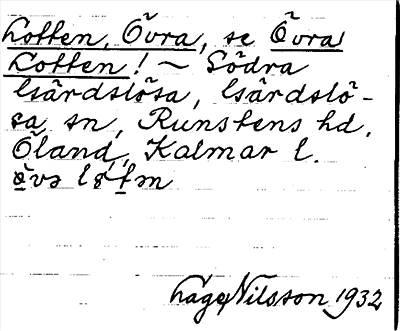 Lotten, Övra, se Övra
Lotten! ~ Södra
Gärdslösa, Gärdslö-
sa sn, Runstens hd,
Öland, Kalmar l.
Tage Nilsson 1932